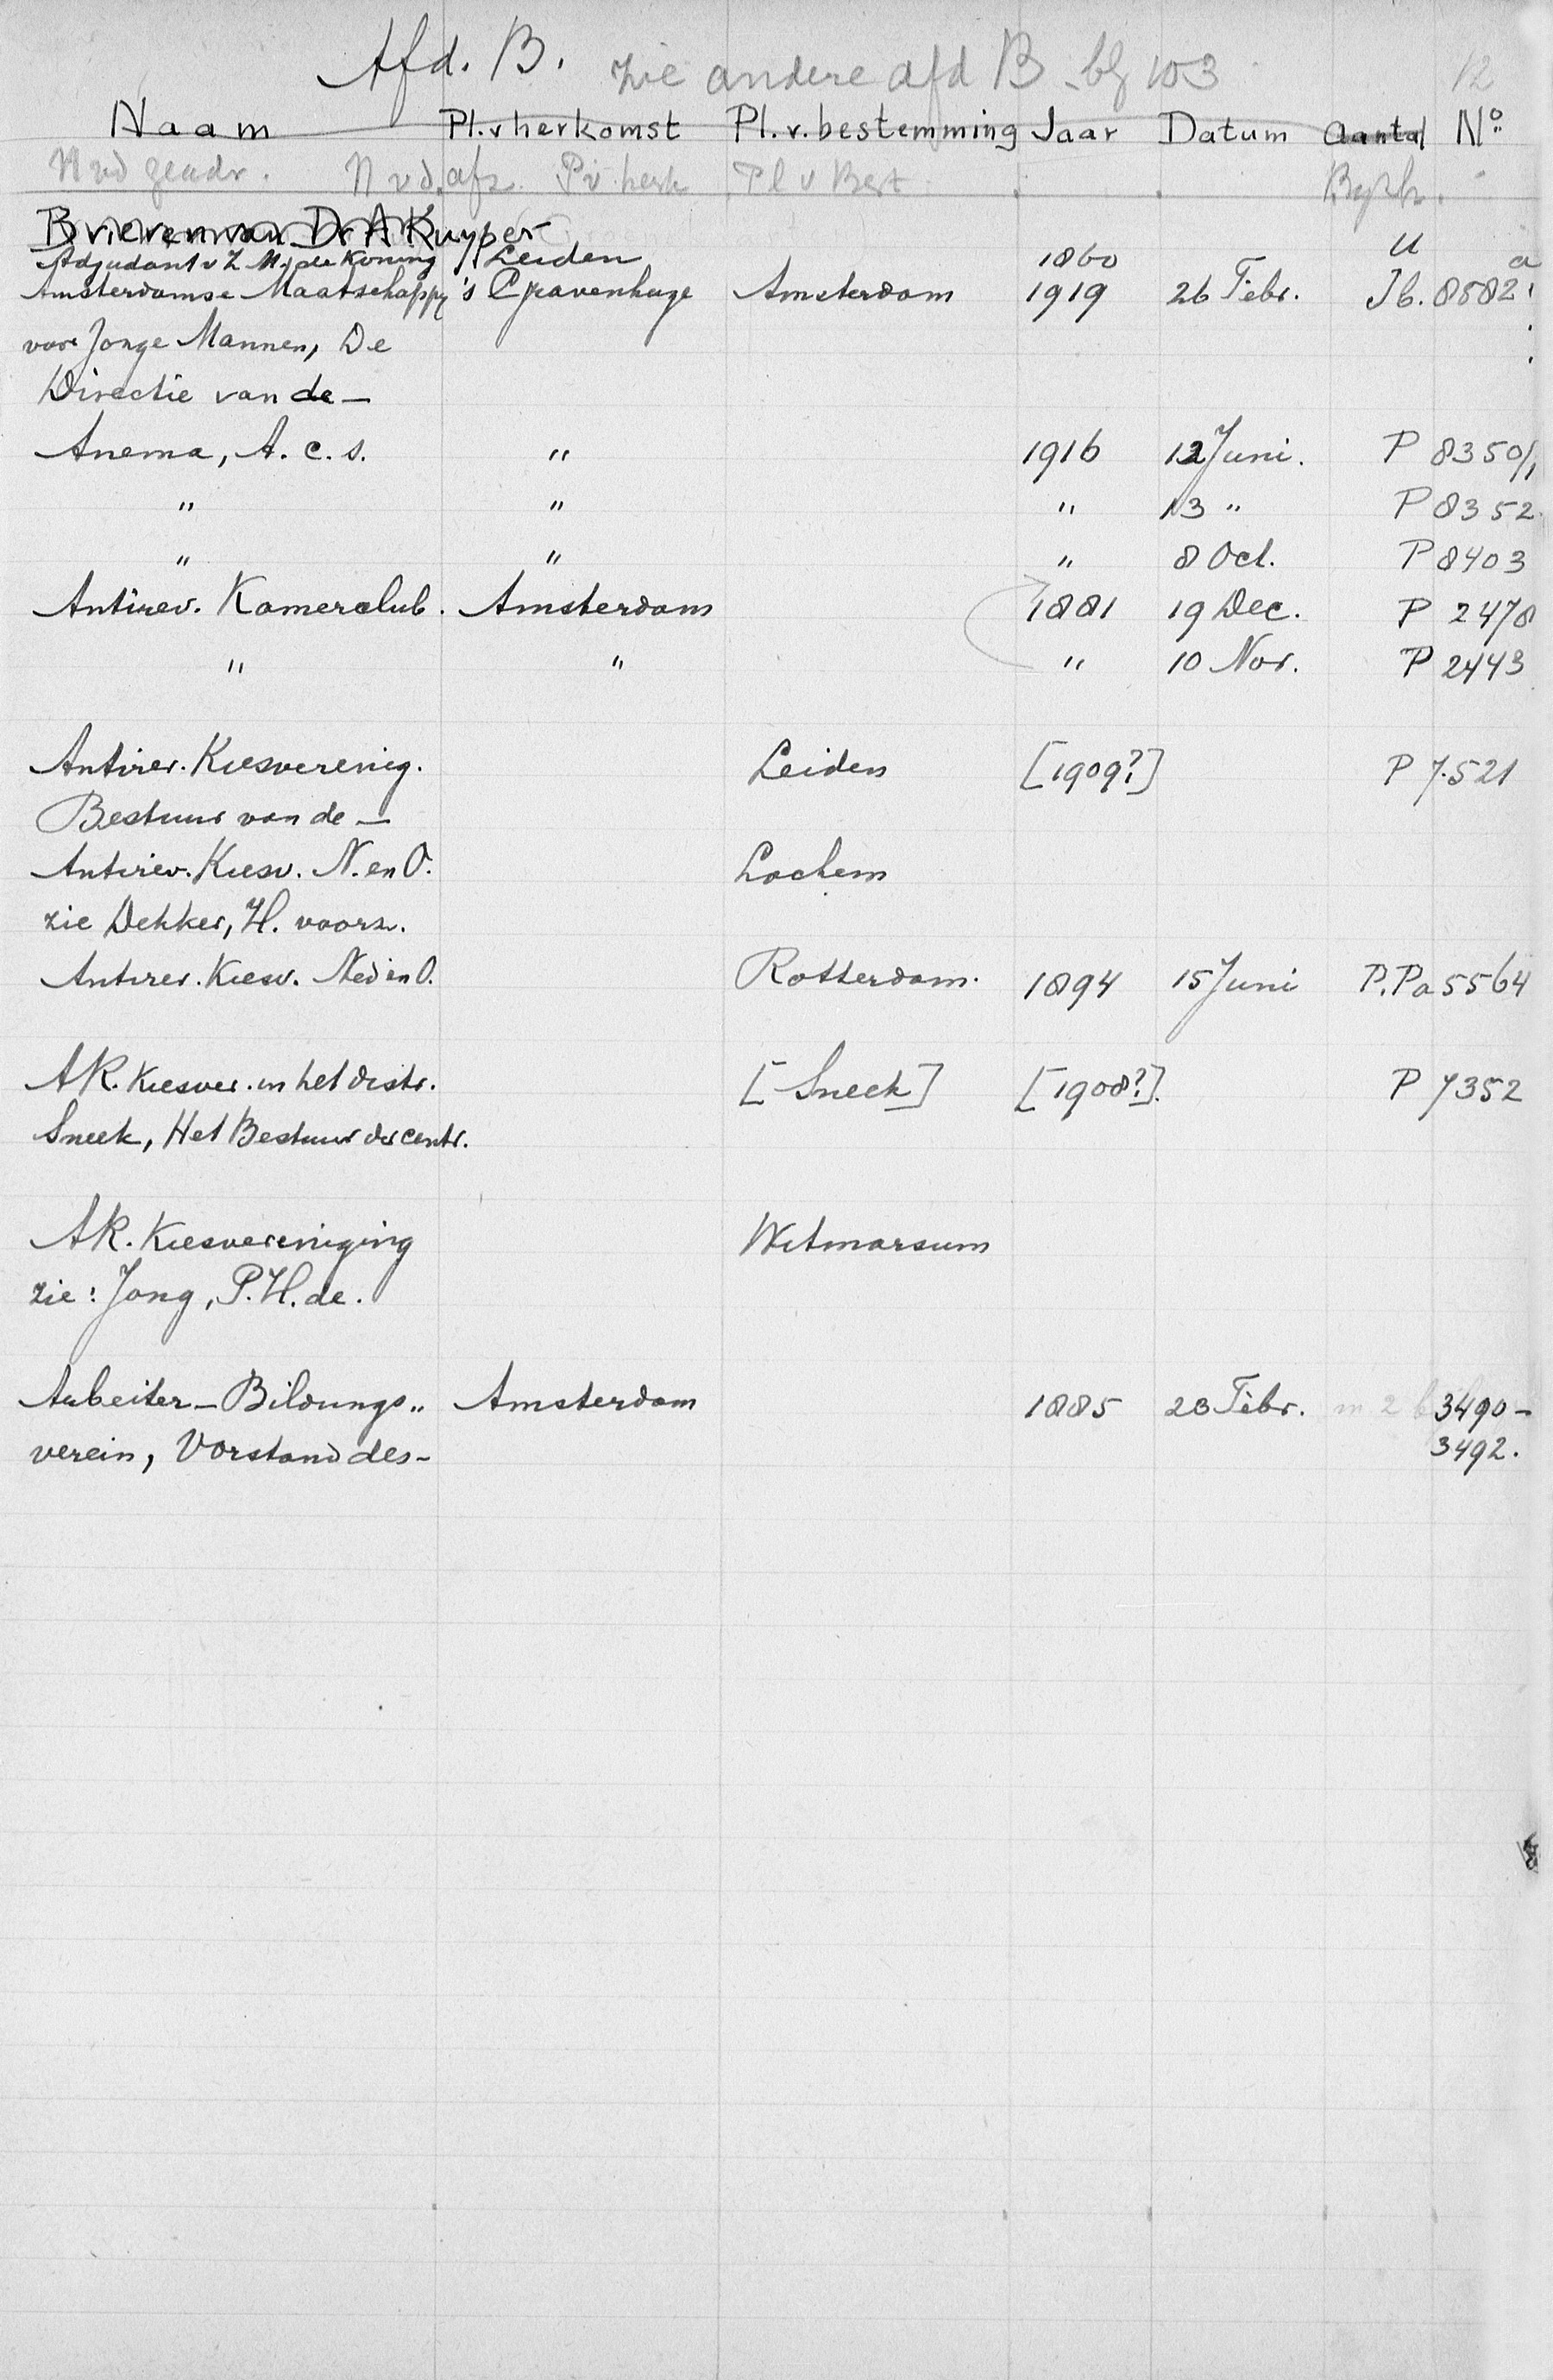 Afd. B. zie andere afd B blz 103 12
Naam Pl. v herkomst Pl. v. bestemming Jaar Datum Aantal No
N vd geadr. N v d. afz. P v. herk Pl v Best
Brieven van Dr A Kuyper
Adjudant v Z. M. de Koning Leiden 1860 U a
Amsterdamse Maatschappy 's Gravenhage Amsterdam 1919 26 Febr. Ib. 8582
voor Jonge Mannen, De
Directie van de —
Anema, A. c. s. " 1916 12 Juni. P 8350/1
" " " 13 " P 8352
" " " 8 Oct. P 8403
Antirev. Kamerclub. Amsterdam 1881 19 Dec. P 2478
" " " 10 Nov. P 2443
Antirev. Kiesverenig. Leiden [1909?] P 7521
Bestuur van de —
Antirev. Kiesv. N. en O. Lochem
zie Dekker, H. voorz.
Antirev. Kiesv. Ned en O. Rotterdam. 1894 15 Juni P. Pa 5564
AR. Kiesver. in het distr. [Sneek] [1908?]. P 7352
Sneek, Het Bestuur der centr.
AR. Kiesvereniging Witmarsum
zie: Jong, P. H. de.
Arbeiter-Bildungs" Amsterdam 1885 23 Febr. 3490-
verein, Vorstand des- 3492.